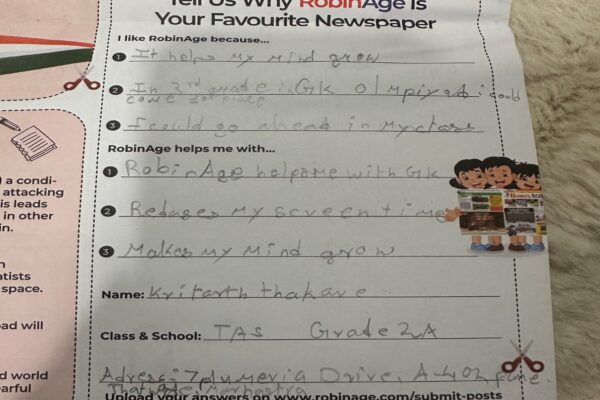 Tell Us Why RobinAge Is
Your Favourite Newspaper
I like RobinAge because...
1 It helps my mind grow
2 In 3rd grade in GK Olmpiyad i could
come 1st place
3 I could go ahead in my class
RobinAge helps me with...
1 RobinAge helpame with GK
2 Reduges my screen time
3 Makes my mind grow
Name: Kritarth thakare
Class & School: TAS Grade 2A
Adress: 7plumeria Drive, A-402 Pune.
Thatwade, Marhastra
Upload your answers on www.robinage.com/submit-posts
) a condi-
attacking
is leads
in other
in.
n
tists
space.
oad will
d world
earful